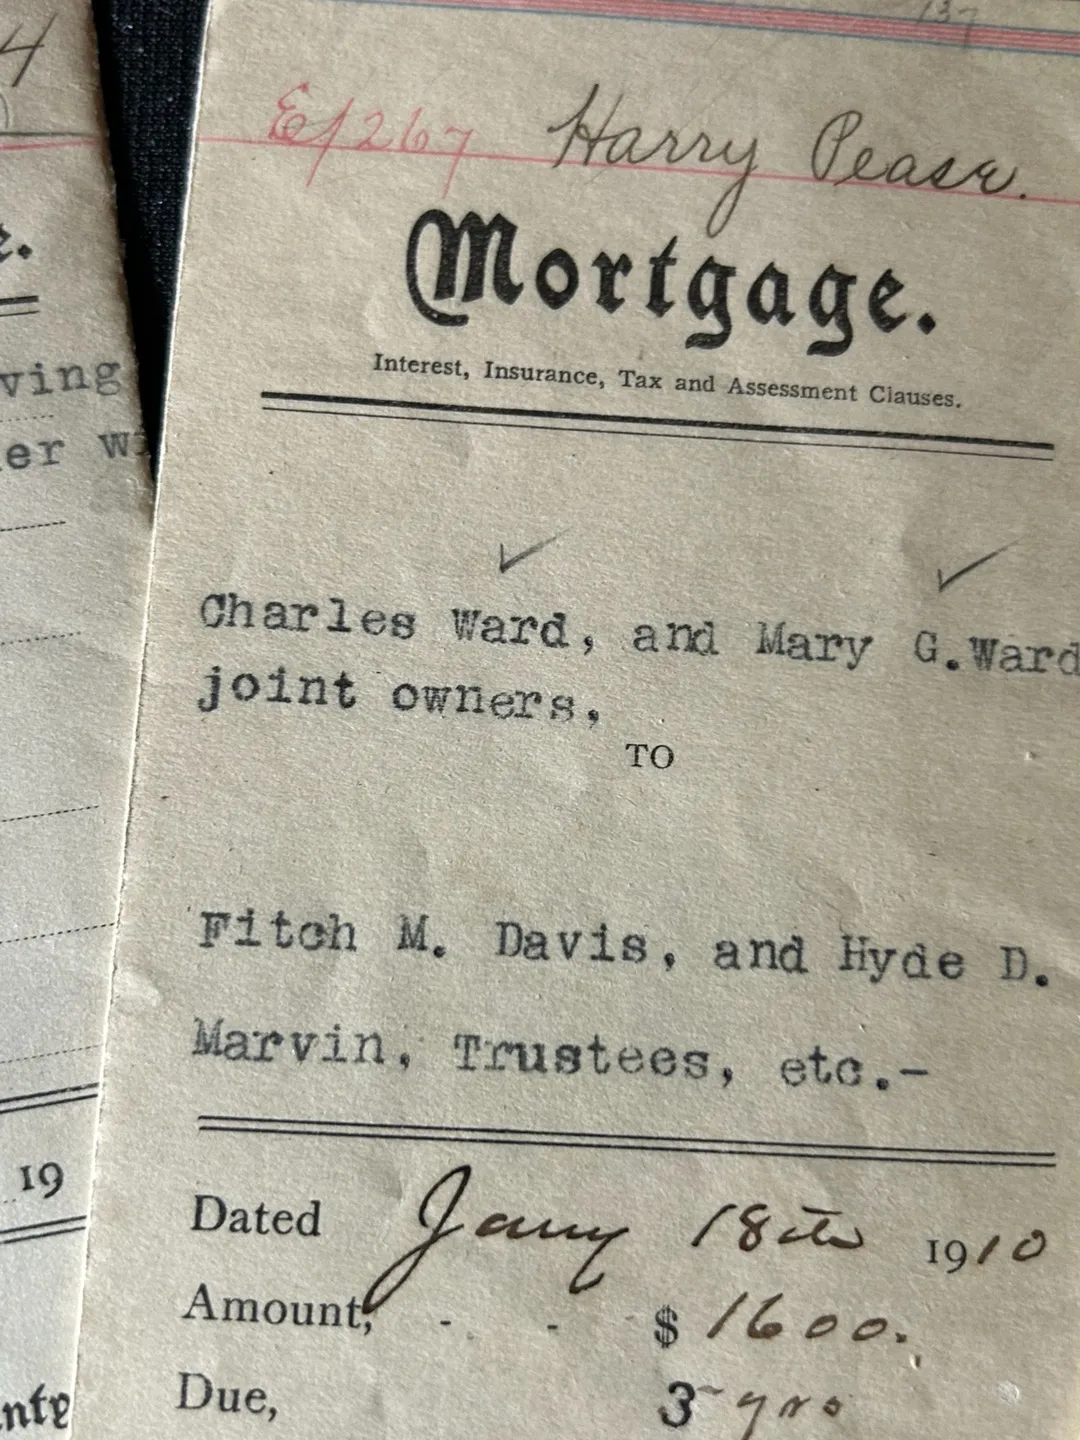 4
e.
ving
er wi
19
nty
137
E/267 Harry Pease.
Mortgage.
Interest, Insurance, Tax and Assessment Clauses.
Charles Ward, and Mary G.Ward
joint owners,
TO
Fitch M. Davis, and Hyde D.
Marvin, Trustees, etc.-
Dated Jany 18th 1910
Amount, - - $ 1600.
Due, 3 yrs